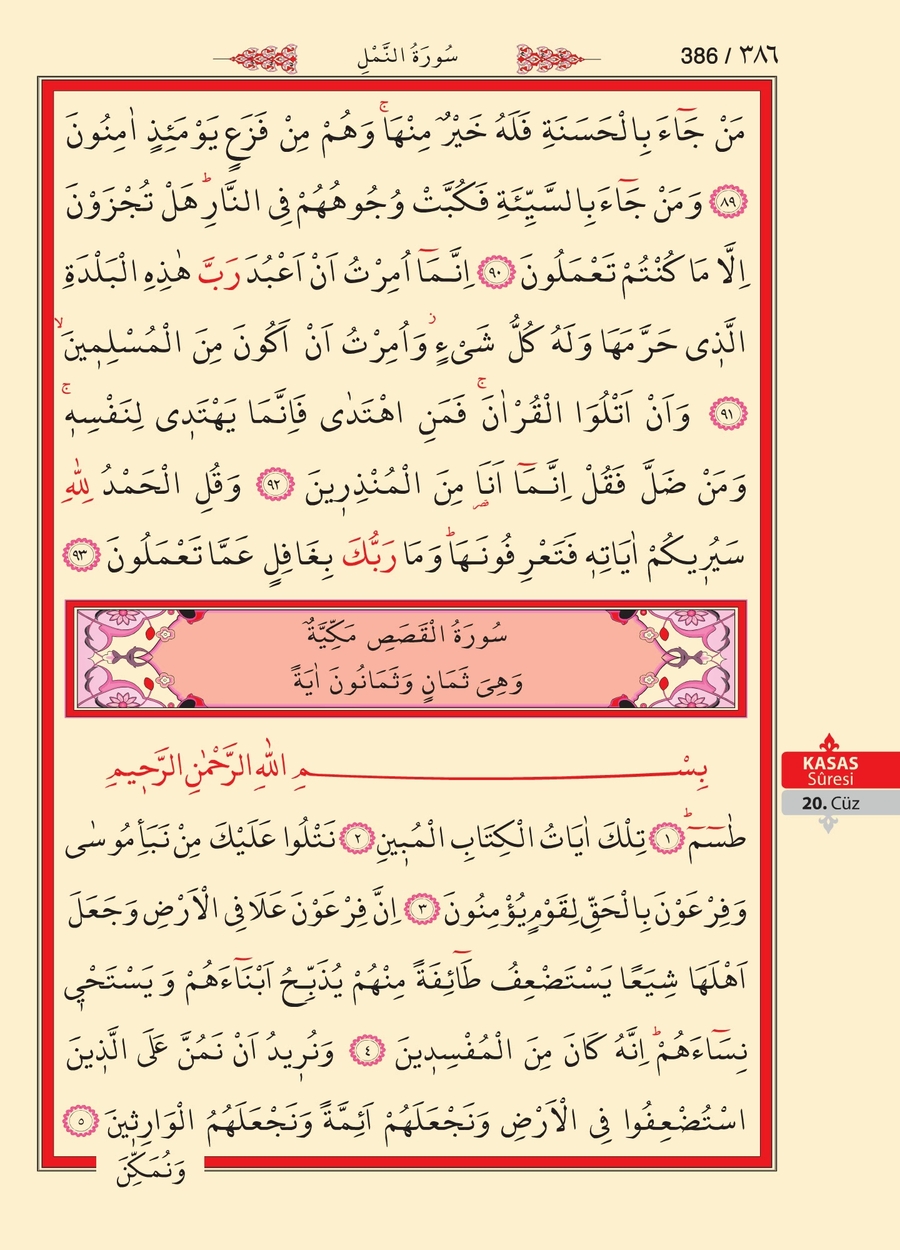 سُورَةُ النَّمْلِ
386 / ٣٨٦
مَنْ جَٓاءَ بِالْحَسَنَةِ فَلَهُ خَيْرٌ مِنْهَاۚ وَهُمْ مِنْ فَزَعٍ يَوْمَئِذٍ اٰمِنُونَ
﴿٨٩﴾ وَمَنْ جَٓاءَ بِالسَّيِّئَةِ فَكُبَّتْ وُجُوهُهُمْ فِى النَّارِۜ هَلْ تُجْزَوْنَ
اِلَّا مَا كُنْتُمْ تَعْمَلُونَ ﴿٩٠﴾ اِنَّمَٓا اُمِرْتُ اَنْ اَعْبُدَ رَبَّ هٰذِهِ الْبَلْدَةِ
الَّذ۪ى حَرَّمَهَا وَلَهُ كُلُّ شَىْءٍۘ وَاُمِرْتُ اَنْ اَكُونَ مِنَ الْمُسْلِم۪ينَۙ
﴿٩١﴾ وَاَنْ اَتْلُوَا الْقُرْاٰنَۚ فَمَنِ اهْتَدٰى فَاِنَّمَا يَهْتَد۪ى لِنَفْسِه۪ۚ
وَمَنْ ضَلَّ فَقُلْ اِنَّمَٓا اَنَا۬ مِنَ الْمُنْذِر۪ينَ ﴿٩٢﴾ وَقُلِ الْحَمْدُ لِلّٰهِ
سَيُر۪يكُمْ اٰيَاتِه۪ فَتَعْرِفُونَهَاۜ وَمَا رَبُّكَ بِغَافِلٍ عَمَّا تَعْمَلُونَ ﴿٩٣﴾
سُورَةُ الْقَصَصِ مَكِّيَّةٌ
وَهِىَ ثَمَانٍ وَثَمَانُونَ اٰيَةً
KASAS
Sûresi
20. Cüz
بِسْمِ اللّٰهِ الرَّحْمٰنِ الرَّح۪يمِ
طٰسٓمٓۜ ﴿١﴾ تِلْكَ اٰيَاتُ الْكِتَابِ الْمُب۪ينِ ﴿٢﴾ نَتْلُوا عَلَيْكَ مِنْ نَبَأِ مُوسٰى
وَفِرْعَوْنَ بِالْحَقِّ لِقَوْمٍ يُؤْمِنُونَ ﴿٣﴾ اِنَّ فِرْعَوْنَ عَلَا فِى الْاَرْضِ وَجَعَلَ
اَهْلَهَا شِيَعًا يَسْتَضْعِفُ طَٓائِفَةً مِنْهُمْ يُذَبِّحُ اَبْنَٓاءَهُمْ وَيَسْتَحْي۪
نِسَٓاءَهُمْۜ اِنَّهُ كَانَ مِنَ الْمُفْسِد۪ينَ ﴿٤﴾ وَنُر۪يدُ اَنْ نَمُنَّ عَلَى الَّذ۪ينَ
اسْتُضْعِفُوا فِى الْاَرْضِ وَنَجْعَلَهُمْ اَئِمَّةً وَنَجْعَلَهُمُ الْوَارِث۪ينَ ﴿٥﴾
وَنُمَكِّنَ